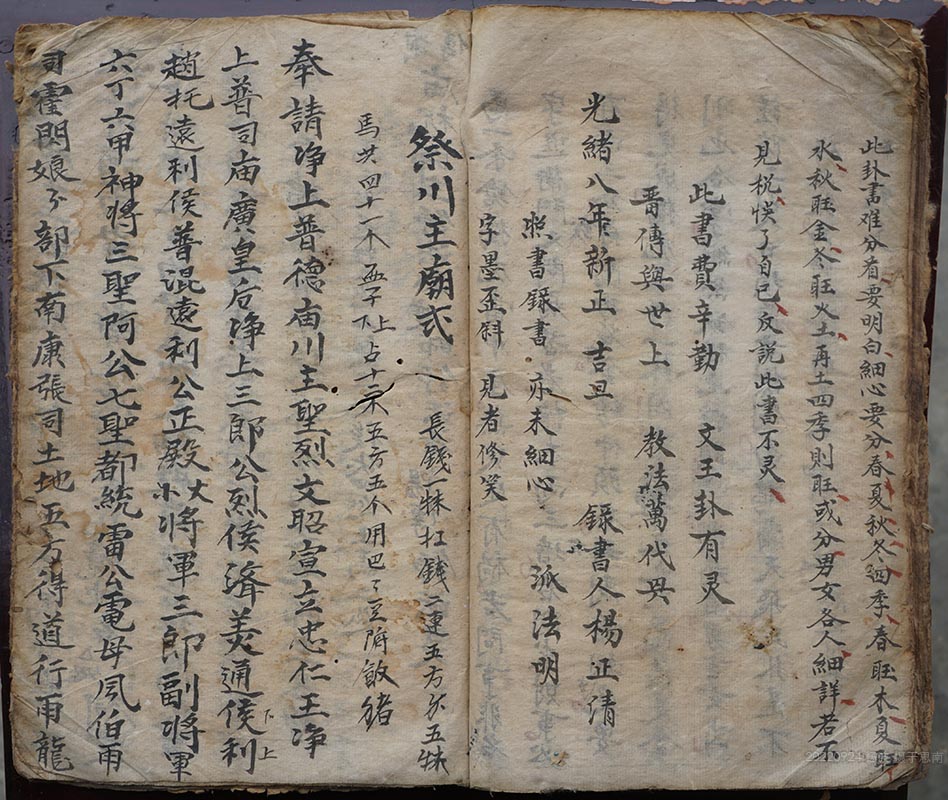 此卦書难分看要明白細心要分春夏秋冬四季春旺木夏旺
水秋旺金冬旺火土再土四季則旺或分男女各人細詳若不
見税快了自己反説此書不灵
此書費辛勤 文王卦有灵
晋傳與世上 教法萬代興
光緒八年新正吉旦 錄書人楊正清
照書錄書亦未細心 派法明
字墨歪斜見者修笑
祭川主廟式 長錢一牀扛錢二連五方分五牀
馬共四十一个 五方五个用巴了豆腐飯猪
奉請净上普德庙川主聖烈文昭宣立忠仁王净
上普司庙廣皇后净上三郎公烈侯濟美通侯利
趙托遠利侯普混遠利公正殿大小將軍三郎副將軍
六丁六甲神將三聖阿公七聖都統雷公電母風伯雨
司霍閃娘分部下南康張司土地五方得道行雨龍